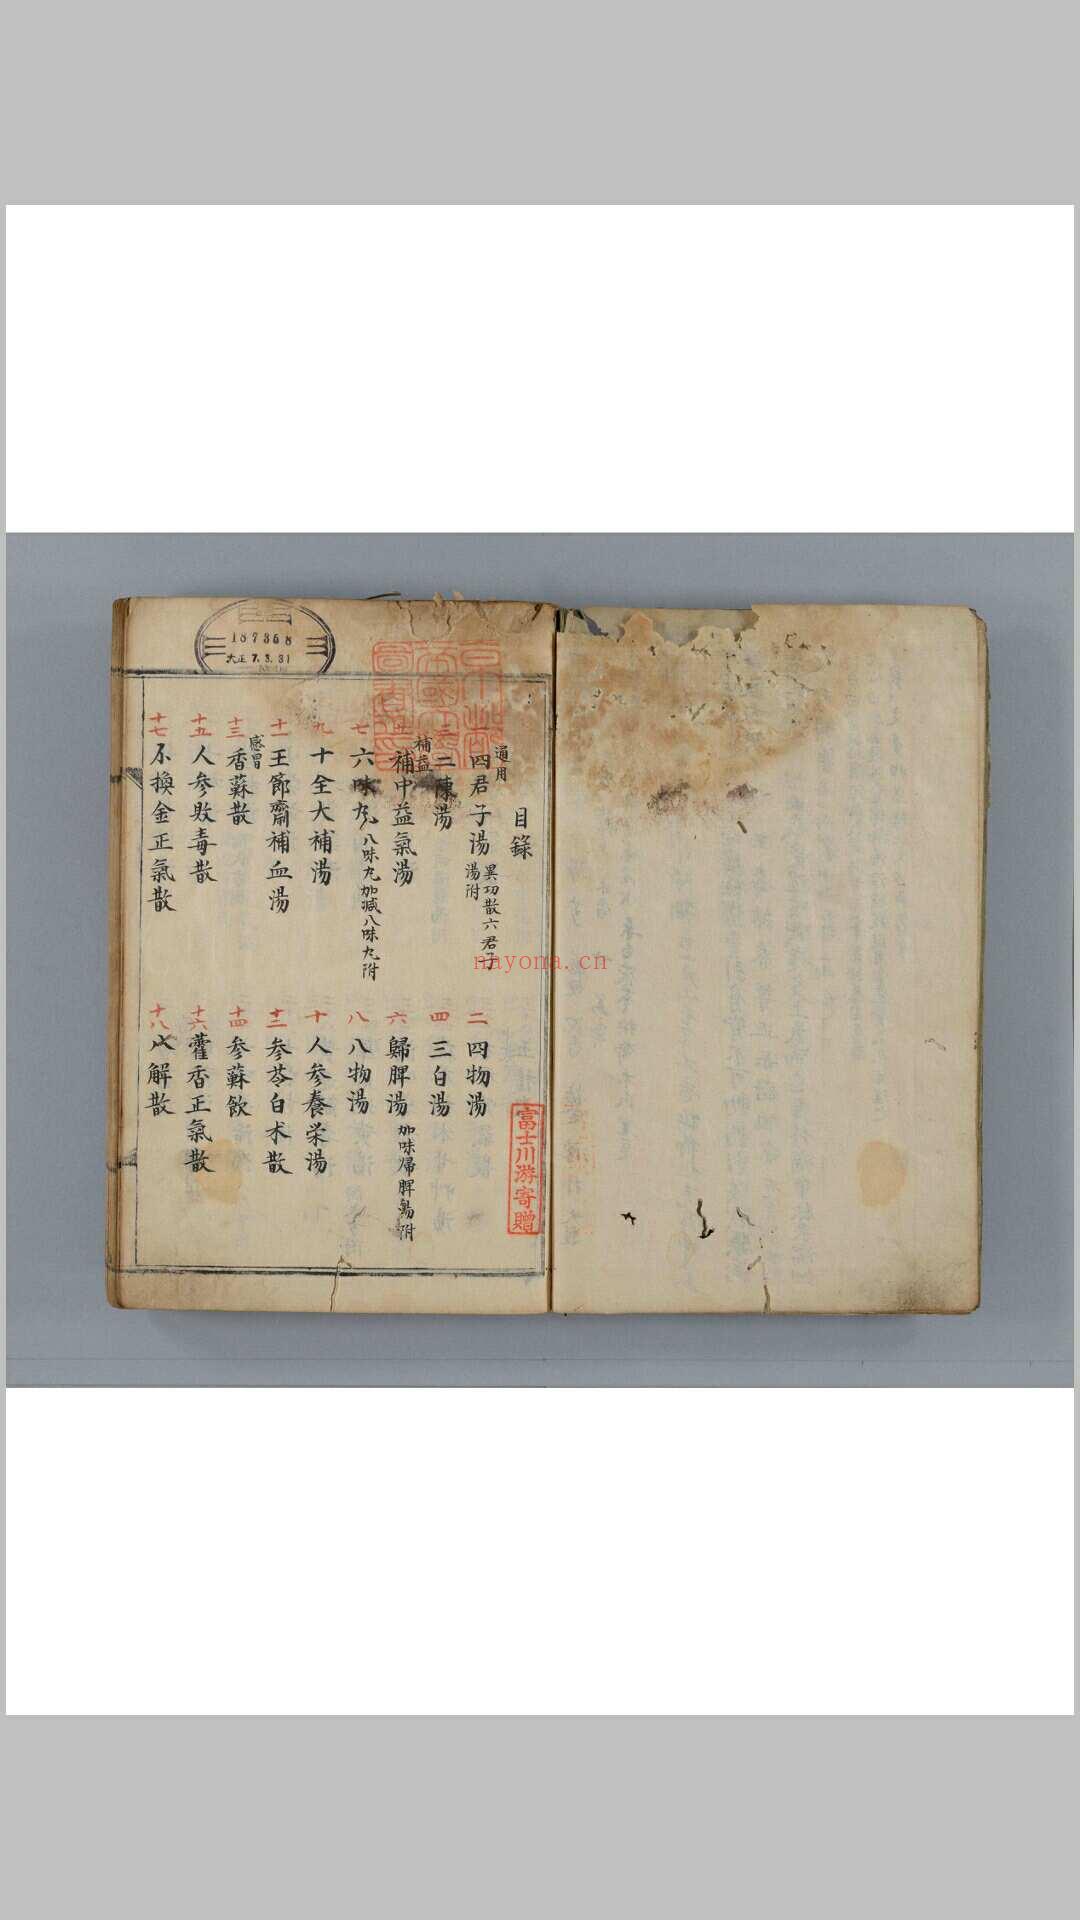 187368
大正 7.3.31
京都帝國大學圖書之印
目錄
通用
四君子湯 異功散六君子湯附
二 四物湯
三 二陳湯
四 三白湯
補益
五 補中益氣湯
六 歸脾湯 加味帰脾湯附
七 六味丸 八味丸加减八味丸附
八 八物湯
九 十全大補湯
十 人參養栄湯
十一 王節齋補血湯
十二 参苓白朮散
感冒
十三 香蘇散
十四 参蘇飲
十五 人参敗毒散
十六 藿香正氣散
十七 不換金正氣散
十八 火解散
富士川游寄贈
nayona.cn